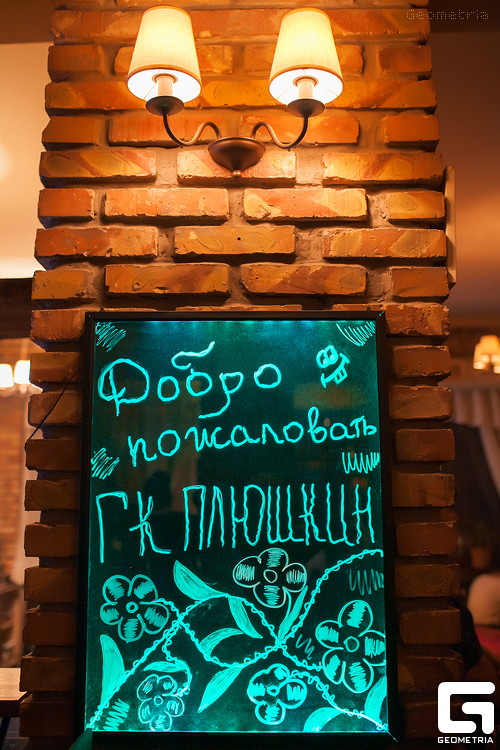 Geometria
Добро
пожаловать
ГК ПЛЮШКИН
GEOMETRIA